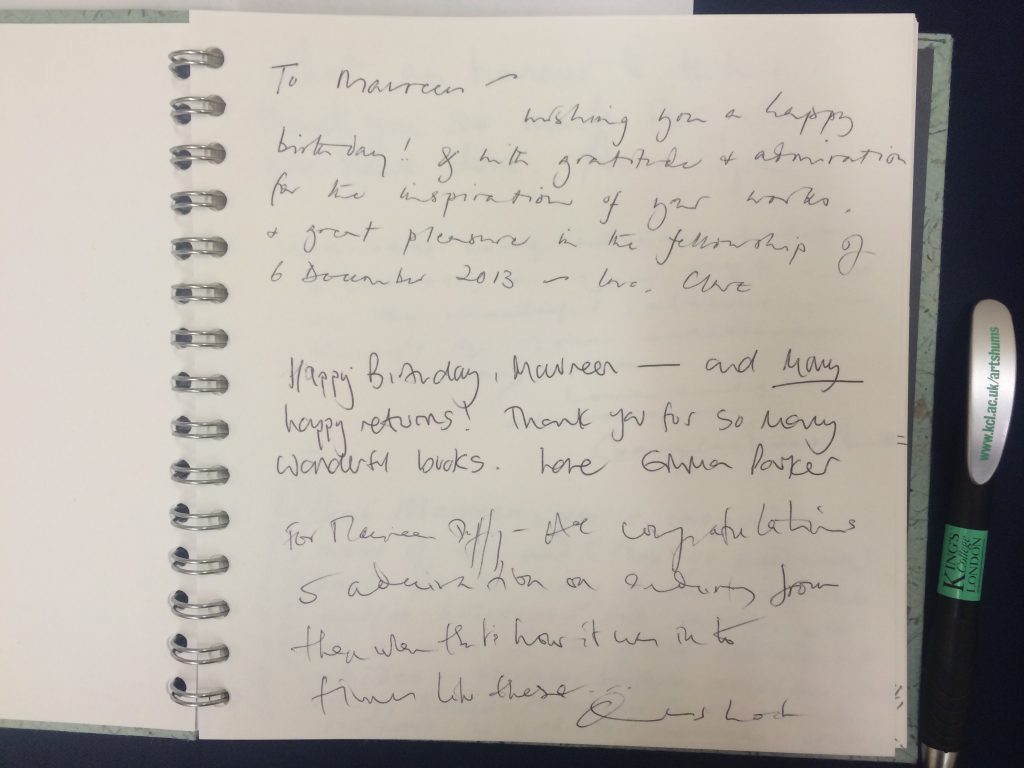 To Maureen –
wishing you a happy
birthday! & with gratitude + admiration
for the inspiration of your works,
+ great pleasure in the fellowship of
6 December 2013 – love, Clare
Happy Birthday, Maureen — and Many
happy returns! Thank you for so many
wonderful books. Love Emma Parker
For Maureen Duffy – congratulations
admiration on enduring from
then when that's how it was in to
times like these
www.kcl.ac.uk/artshums
KING'S
College
LONDON